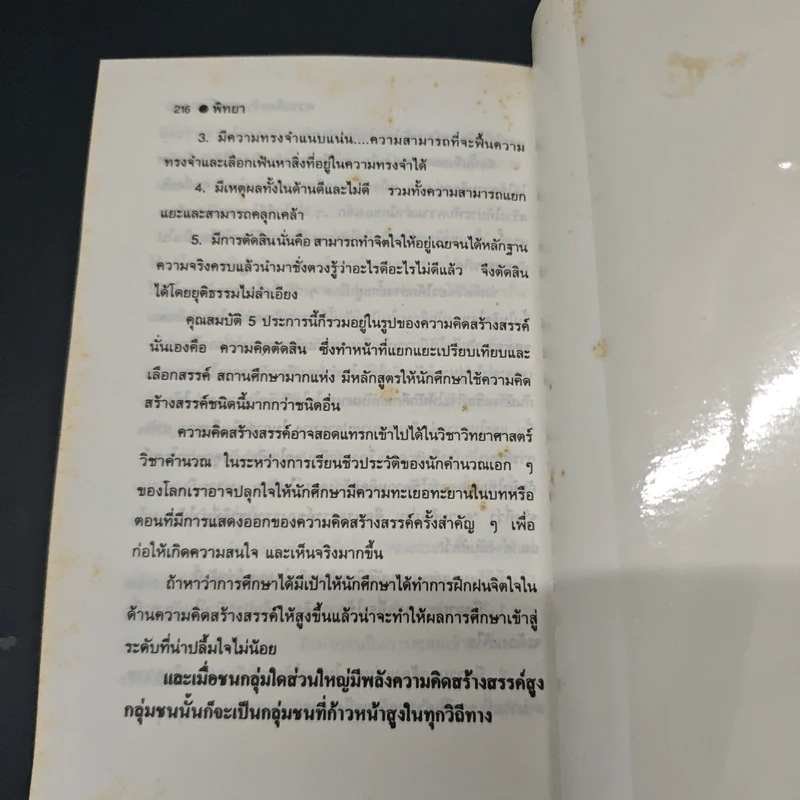 216 ● พิทยา
3. มีความทรงจำแนบแน่น....ความสามารถที่จะฟื้นความ
ทรงจำและเลือกเฟ้นหาสิ่งที่อยู่ในความทรงจำได้
4. มีเหตุผลทั้งในด้านดีและไม่ดี รวมทั้งความสามารถแยก
แยะและสามารถคลุกเคล้า
5. มีการตัดสินนั่นคือ สามารถทำจิตใจให้อยู่เฉยจนได้หลักฐาน
ความจริงครบแล้วนำมาชั่งตวงรู้ว่าอะไรดีอะไรไม่ดีแล้ว จึงตัดสิน
ได้โดยยุติธรรมไม่ลำเอียง
คุณสมบัติ 5 ประการนี้ก็รวมอยู่ในรูปของความคิดสร้างสรรค์
นั่นเองคือ ความคิดตัดสิน ซึ่งทำหน้าที่แยกแยะเปรียบเทียบและ
เลือกสรรค์ สถานศึกษามากแห่ง มีหลักสูตรให้นักศึกษาใช้ความคิด
สร้างสรรค์ชนิดนี้มากกว่าชนิดอื่น
ความคิดสร้างสรรค์อาจสอดแทรกเข้าไปได้ในวิชาวิทยาศาสตร์
วิชาคำนวณ ในระหว่างการเรียนชีวประวัติของนักคำนวณเอก ๆ
ของโลกเราอาจปลุกใจให้นักศึกษามีความทะเยอทะยานในบทหรือ
ตอนที่มีการแสดงออกของความคิดสร้างสรรค์ครั้งสำคัญ ๆ เพื่อ
ก่อให้เกิดความสนใจ และเห็นจริงมากขึ้น
ถ้าหาว่าการศึกษาได้มีเป้าให้นักศึกษาได้ทำการฝึกฝนจิตใจใน
ด้านความคิดสร้างสรรค์ให้สูงขึ้นแล้วน่าจะทำให้ผลการศึกษาเข้าสู่
ระดับที่น่าปลื้มใจไม่น้อย
และเมื่อชนกลุ่มใดส่วนใหญ่มีพลังความคิดสร้างสรรค์สูง
กลุ่มชนนั้นก็จะเป็นกลุ่มชนที่ก้าวหน้าสูงในทุกวิถีทาง